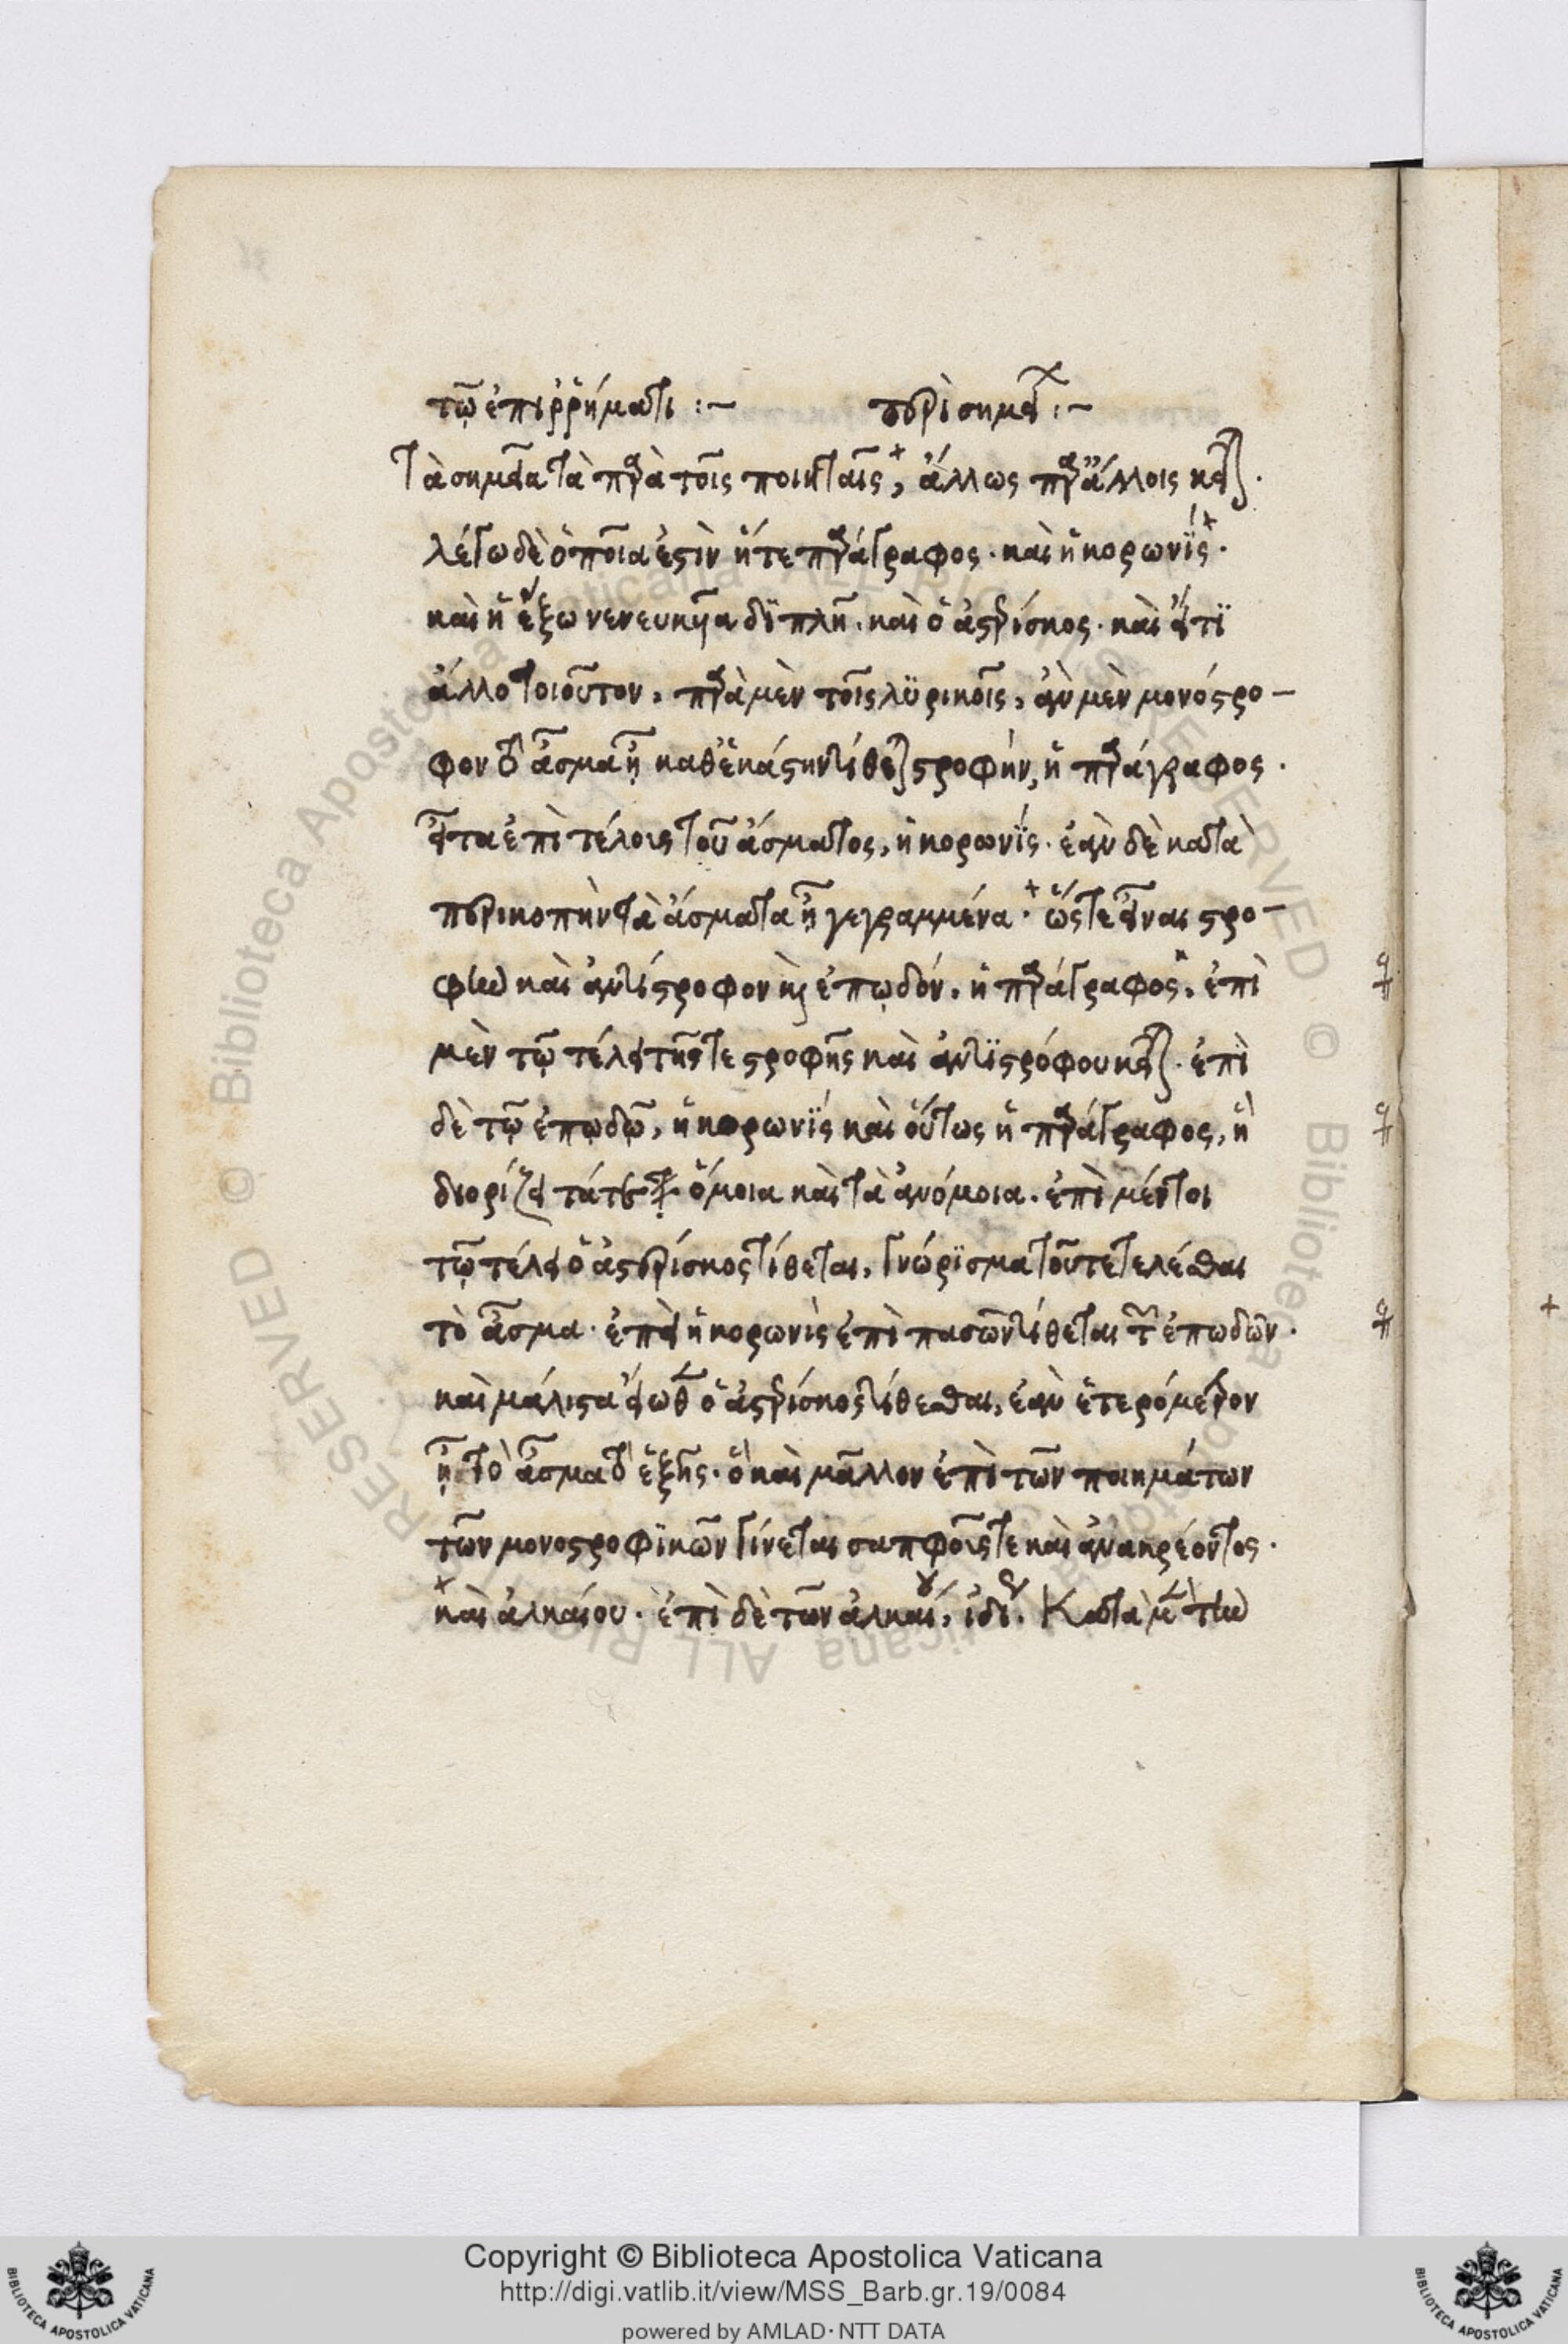 τῷ ἐπιῤῥήματι :~ περὶ σημεί :~
Τὰ σημεῖα τὰ παρὰ τοῖς ποιηταῖς, ἄλλως παρ' ἄλλοις κεῖται.
λέγω δὲ ὁποῖα ἐστὶν ἥτε παράγραφος. καὶ ἡ κορωνΐς.
καὶ ἡ ἔξω νενευκυῖα δϊπλῆ. καὶ ὁ ἀστερίσκος. καὶ εἴ τϊ
ἄλλο τοιοῦτον, παρὰ μὲν τοῖς λϋρικοῖς, ἂν μὲν μονόστρο-
φον τὸ ᾆσμα ᾖ καθ' ἑκάστην τίθεται στροφήν, ἡ παράγραφος.
εἶτα ἐπὶ τέλους τοῦ ᾄσματος, ἡ κορωνΐς. ἐὰν δὲ κατὰ
περικοπὴν τὰ ᾄσματα ᾖ γεγραμμένα. ὥστε εἶναι στρο-
φὴν καὶ ἀντίστροφον καὶ ἐπῳδόν. ἡ παράγραφος, ἐπὶ
μὲν τῷ τέλει τῆς τε στροφῆς καὶ ἀντϊστρόφου κεῖται. ἐπὶ
δὲ τῷ ἐπῳδῷ, ἡ κορωνΐς καὶ οὕτως ἡ παράγραφος, ἣ
διορίζει τά τε ὅμοια καὶ τὰ ἀνόμοια. ἐπὶ μέντοι
τῷ τέλει ὁ ἀστερίσκος τίθεται, γνώρϊσμα τοῦ τετελέσθαι
τὸ ᾆσμα. ἐπεὶ ἡ κορωνὶς ἐπὶ πασῶν τίθεται τῶν ἐπωδῶν.
καὶ μάλιστα εἴωθεν ὁ ἀστερίσκος τίθεσθαι, ἐὰν ἑτερόμετρον
ᾖ τὸ ᾆσμα τὸ ἑξῆς. ὃ καὶ μᾶλλον ἐπὶ τῶν ποιημάτων
τῶν μονοστροφϊκῶν γίνεται σαπφοῦς τε καὶ ἀνακρέοντος.
καὶ ἀλκαίου. ἐπὶ δὲ τῶν ἀλκαίου, ἰδί. Κατὰ μὲν τὴν
Copyright © Biblioteca Apostolica Vaticana
http://digi.vatlib.it/view/MSS_Barb.gr.19/0084
powered by AMLAD·NTT DATA